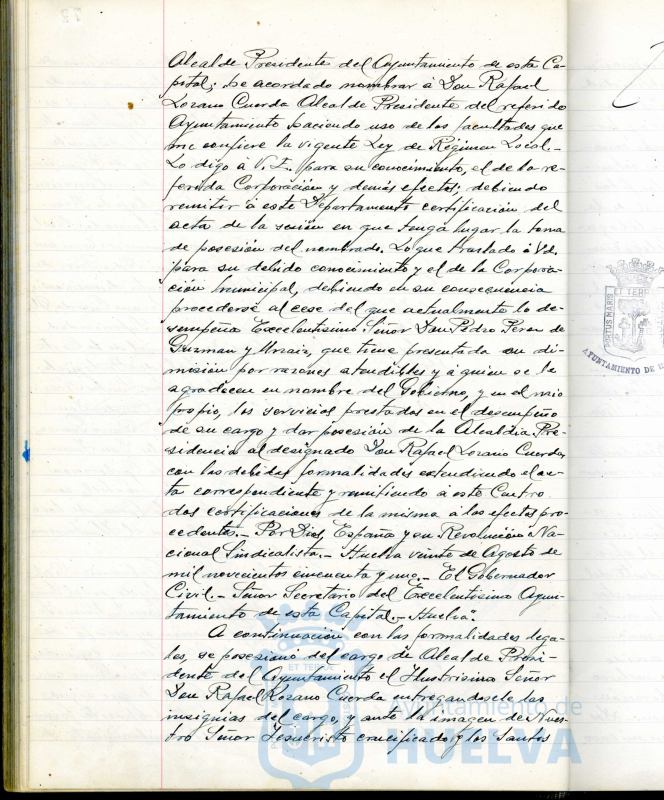 Alcalde Presidente del Ayuntamiento de esta Ca-
pital; he acordado nombrar á Don Rafael
Lozano Cuerda Alcalde Presidente del referido
Ayuntamiento haciendo uso de las facultades que
me confiere la vigente Ley de Régimen Local.-
Lo digo á V.I. para su conocimiento, el de la re-
ferida Corporación y demás efectos; debiendo
remitir á este Departamento certificación del
acta de la sesión en que tenga lugar la toma
de posesión del nombrado. Lo que traslado á Vd.
para su debido conocimiento y el de la Corpora-
ción Municipal, debiendo en su consecuencia
procederse al cese del que actualmente lo de-
sempeña Excelentísimo Señor Don Pedro Perez de
Guzman y Urzaiz, que tiene presentada su di-
misión por razones atendibles y á quien se le
agradecen en nombre del Gobierno, y en el mio
propio, los servicios prestados en el desempeño
de su cargo y dar posesión de la Alcaldia Pre-
sidencia al designado Don Rafael Lozano Cuerda,
con las debidas formalidades extendiendo el ac-
ta correspondiente y remitiendo á este Centro
dos certificaciones de la misma á los efectos pro-
cedentes.- Por Dios, España y su Revolución Na-
cional Sindicalista.- Huelva veinte de Agosto de
mil novecientos cincuenta y uno.- El Gobernador
Civil.- Señor Secretario del Excelentísimo Ayun-
tamiento de esta Capital.- Huelva".
A continuación con las formalidades lega-
les, se posesionó del cargo de Alcalde Presi-
dente del Ayuntamiento el Ilustrísimo Señor
Don Rafael Lozano Cuerda entregandosele las
insignias del cargo, y ante la imagen de Nues-
tro Señor Jesucristo crucificado y los Santos
PORTUS MARIS ET TERRE
AYUNTAMIENTO DE H
ET TERRE
Ayuntamiento de
HUELVA